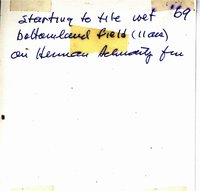 Starting to tile wet '69
bottomland field (11 ac)
on Herman Schmitz fm